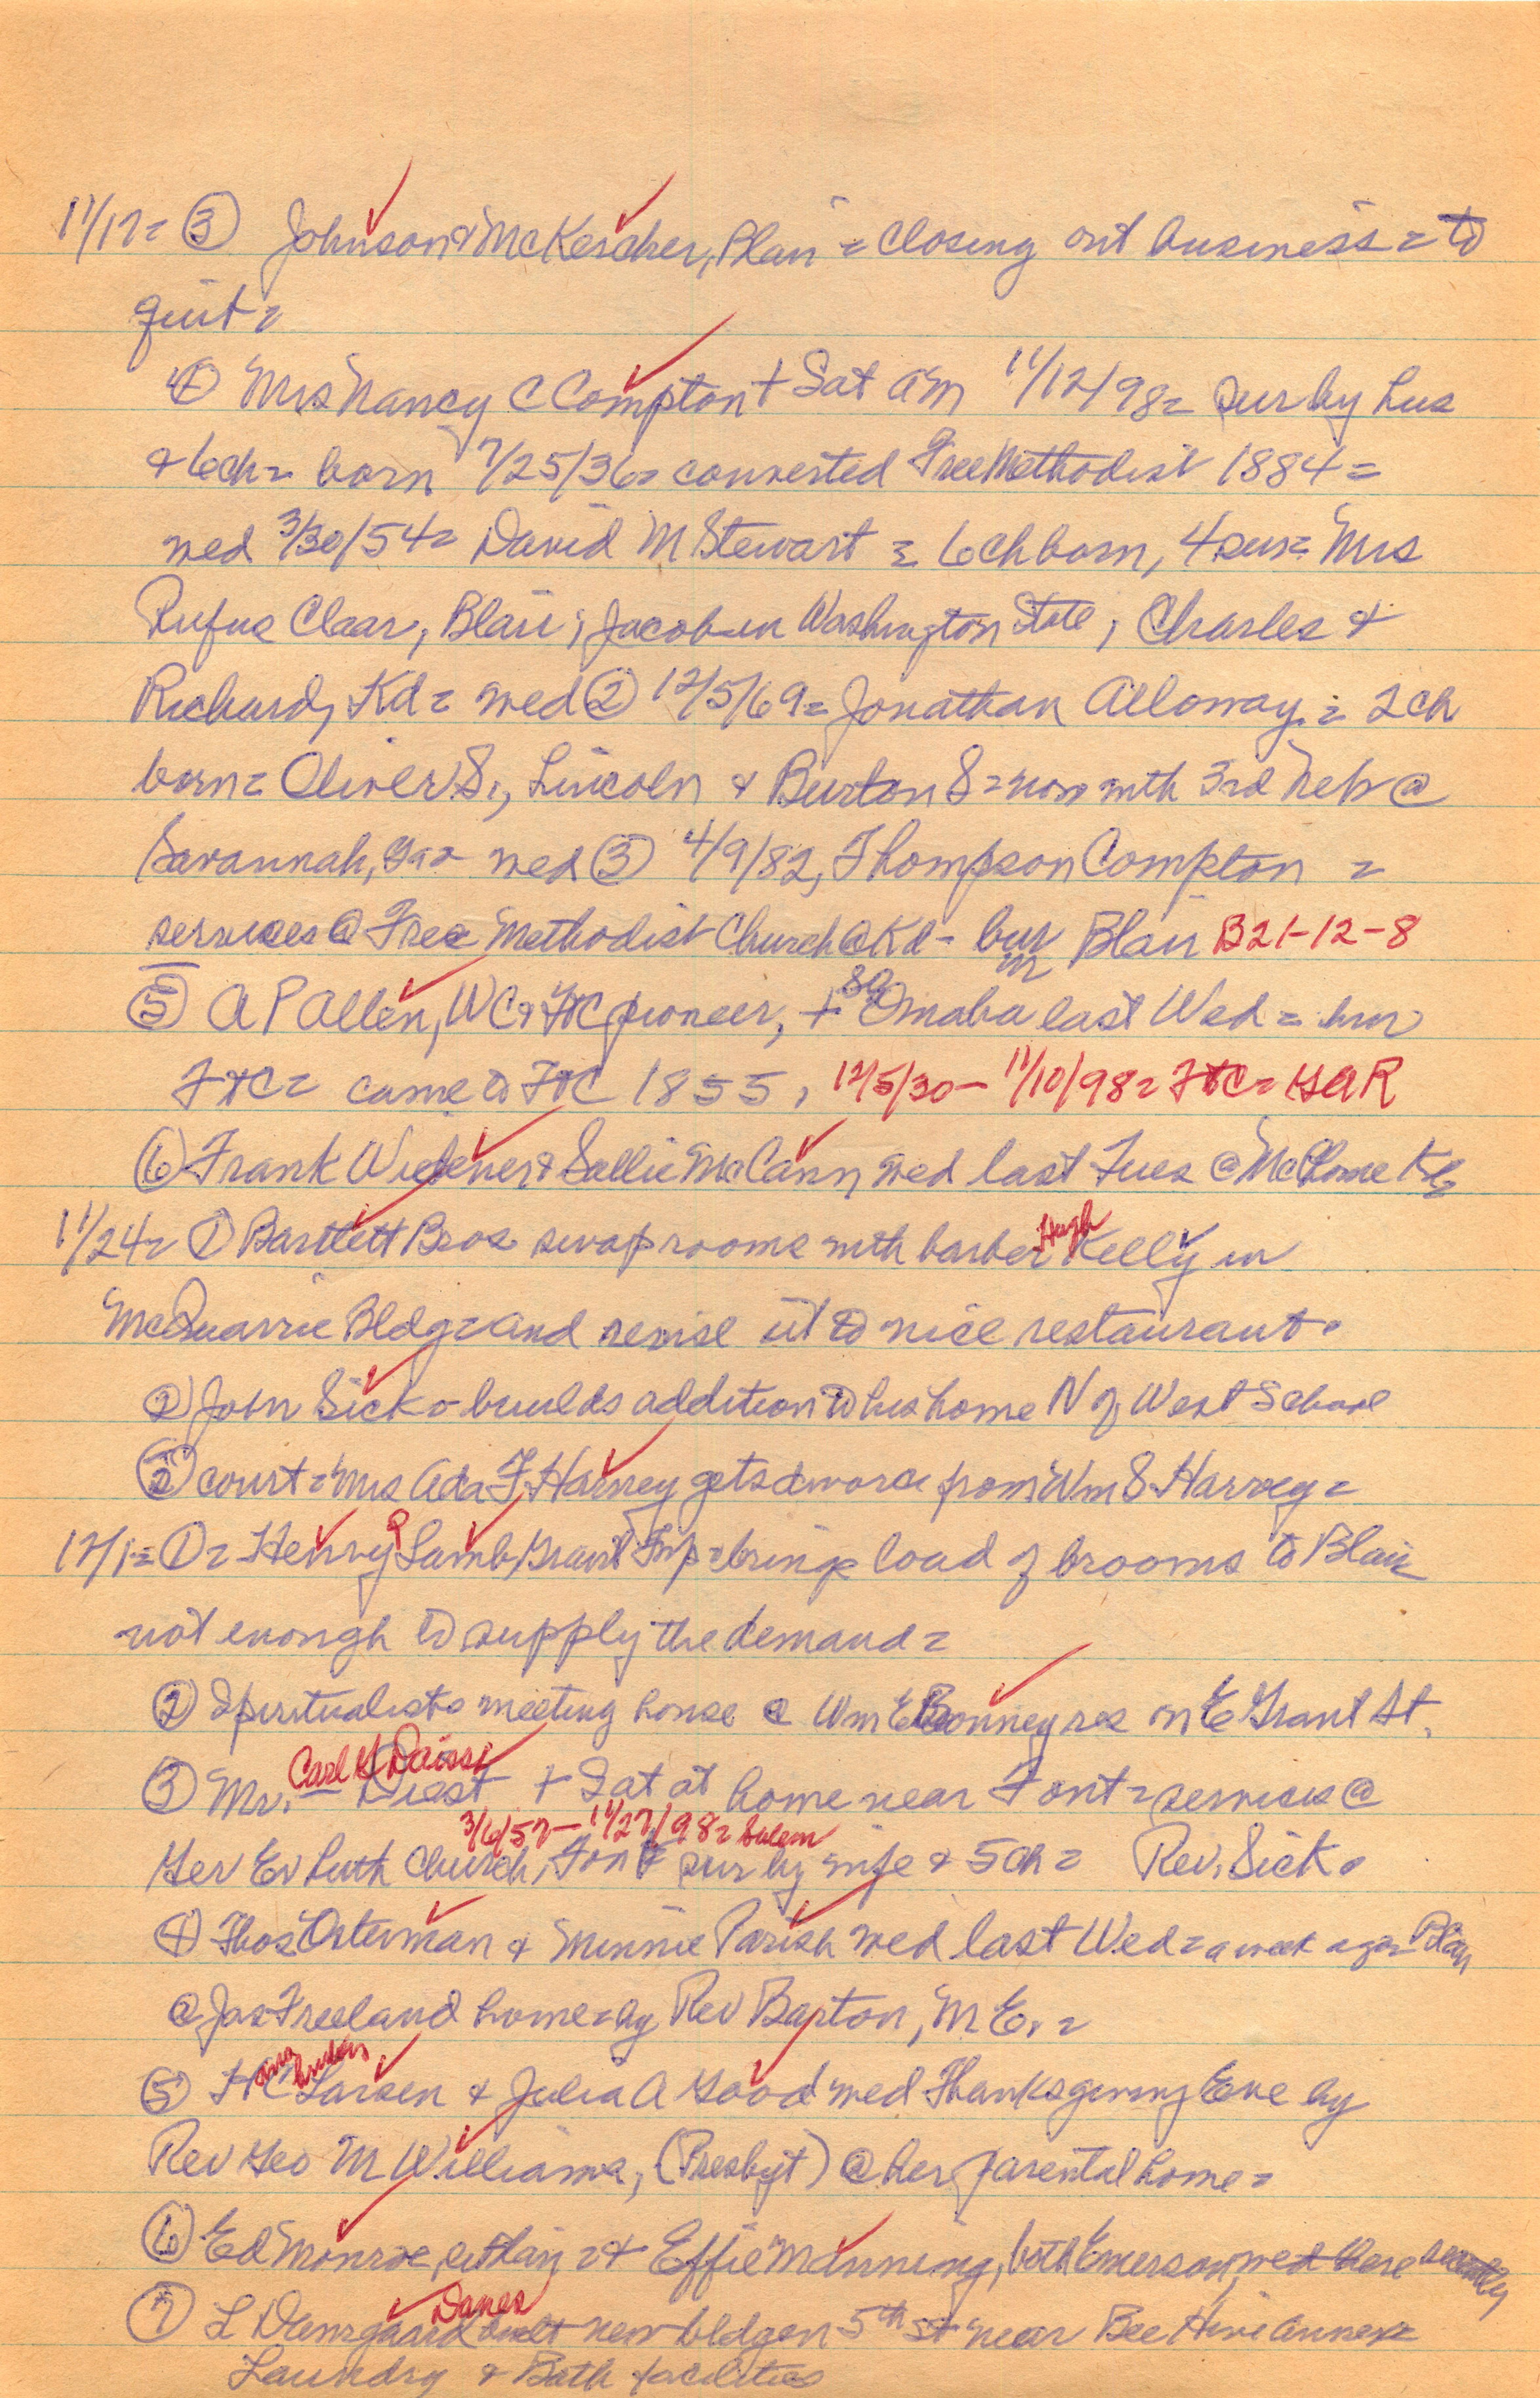 11/17= ③ Johnson & McKercher, Blair = closing out business = to
quit =
④ Mrs Nancy C Compton + Sat AM 11/12/98 = sur by hus
& 6ch = born 7/25/36 = converted Free Methodist 1884 =
wed 3/30/54 = David M Stewart = 6ch born, 4 sur = Mrs
Rufus Claar, Blair; Jacob in Washington State; Charles &
Richard, Kd = wed ② 12/5/69 = Jonathan Alloway = 2ch
born = Oliver S., Lincoln & Burton S = now with 3rd Neb @
Savannah, Ga = wed ③ 4/9/82, Thompson Compton =
services @ Free Methodist Church @ Kd - bur Blair B21-12-8
⑤ A P Allen, WC & FtC pioneer, + So Omaha last Wed = bur
FtC = came to FtC 1855, 12/5/30 - 11/10/98 = FtC = GAR
⑥ Frank Widener & Sallie McCann wed last Tues @ Mc home Kd
11/24 = ① Bartlett Bros swap rooms with barber Hugh Kelly in
McQuarrie Bldg = and revise it to nice restaurant.
② John Sick = builds addition to his home N of West School
③ court = Mrs Ada F Harvey gets divorce from Wm S Harvey =
12/1 = ① = Henry P Lamb, Grant Twp = brings load of brooms to Blair
not enough to supply the demand =
② Spiritualists meeting house @ Wm E Bonney res on E Grant St.
Carl G Daiss
③ Mr. — Diest + Sat at home near Font = services @
3/6/57 - 11/27/98 = Salem
Ger Ev Luth Church, Font sur by wife & 5ch = Rev. Sick.
④ Thos Osterman & Minnie Parish wed last Wed = a week ago = Blair
@ Jas Freeland home = by Rev Barton, M E. =
⑤ H C Larsen & Julia A Good wed Thanksgiving Eve by
Rev Geo M Williams, (Presbyt) @ her parental home =
⑥ Ed Monroe, & Effie Manning, both Emerson, wed there recently
Danes
⑦ L Damgaard built new bldg on 5th St near Bee Hive annex
Laundry & Bath facilities